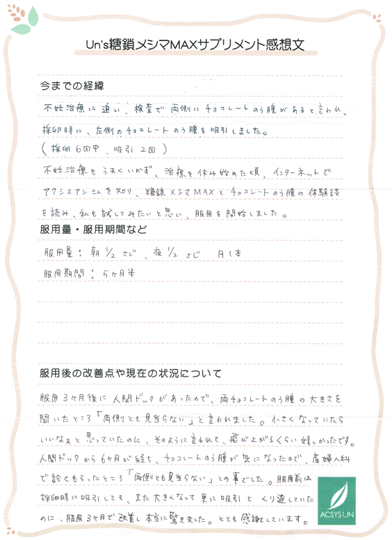 Un's糖鎖メシマMAXサプリメント感想文
今までの経緯
不妊治療に通い、検査で両側にチョコレートのう腫があると言われ、
採卵時に、左側のチョコレートのう腫を吸引しました。
(採卵6回中、吸引2回)
不妊治療もうまくいかず、治療を休み始めた頃、インターネットで
アクシスアンさんを知り、糖鎖メシマMAXとチョコレートのう腫の体験談
を読み、私も試してみたいと思い、服用を開始しました。
服用量・服用期間など
服用量:朝1/2さじ、夜1/2さじ 月1本
服用期間:5ヶ月半
服用後の改善点や現在の状況について
服用3ヶ月後に人間ドックがあったので、両チョコレートのう腫の大きさを
聞いたところ「両側とも見当らない」と言われました。小さくなっていたら
いいなぁと思っていたのに、そのように言われて、飛び上がるくらい嬉しかったです。
人間ドックから6ヶ月が経ち、チョコレートのう腫が気になったので、産婦人科
で診てもらったところ「両側とも見当らない」との事でした。服用前は
採卵時に吸引しても、また大きくなって更に吸引とくり返していた
のに、服用3ヶ月で改善し本当に驚きました。とても感謝しています。
ACSYS UN